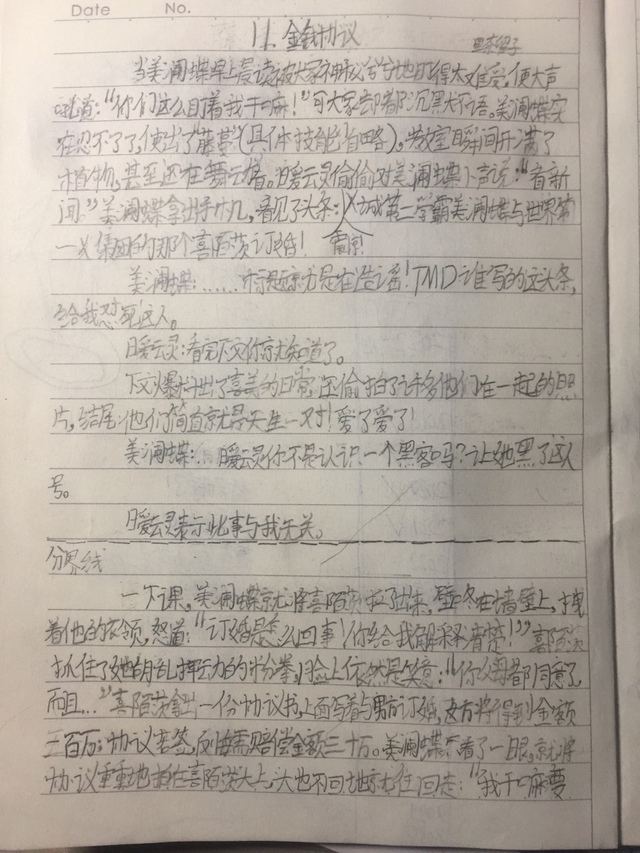 Date No.
11.金钱协议
当美澜蝶早上晨读被大家用议论的目光盯得太难受,便大声
吼道:“你们这么盯着我干嘛!”可大家却都沉默不语。美澜蝶实
在忍不了了,使出了藤蔓(具体技能省略)。教室瞬间开满了
植物,甚至还在舞动着。暖云灵偷偷对美澜蝶小声说:“看新
闻。”美澜蝶拿出手机,看见了头条:城第一学霸美澜蝶与世界第
一集团的那个喜陌茨订婚!
美澜蝶:……标题党力是在造谣!TMD谁写的这头条,
给我怼死这人。
暖云灵:看完下文你就知道了。
下文爆料出了喜美的日常,还偷拍了许多他们在一起的照
片,结尾:他们简直就是天生一对!爱了爱了!
美澜蝶:…暖云灵你不是认识一个黑客吗?让她黑了这人
号。
暖云灵表示此事与我无关。
分界线
一下课,美澜蝶就将喜陌茨拉了出来,壁咚在墙壁上,拽
着他的衣领,怒道:“订婚是怎么回事!你给我解释清楚!”喜陌茨
抓住了她胡乱挥动的粉拳,脸上依然是笑意:“你父母都同意了
而且…”喜陌茨拿出一份协议书,上面写着与男方订婚,女方将得到金额
三百万;协议若签,反悔需赔偿金额三十万。美澜蝶看了一眼,就将
协议重重地砸在喜陌茨头上,头也不回地就往回走:“我干嘛要